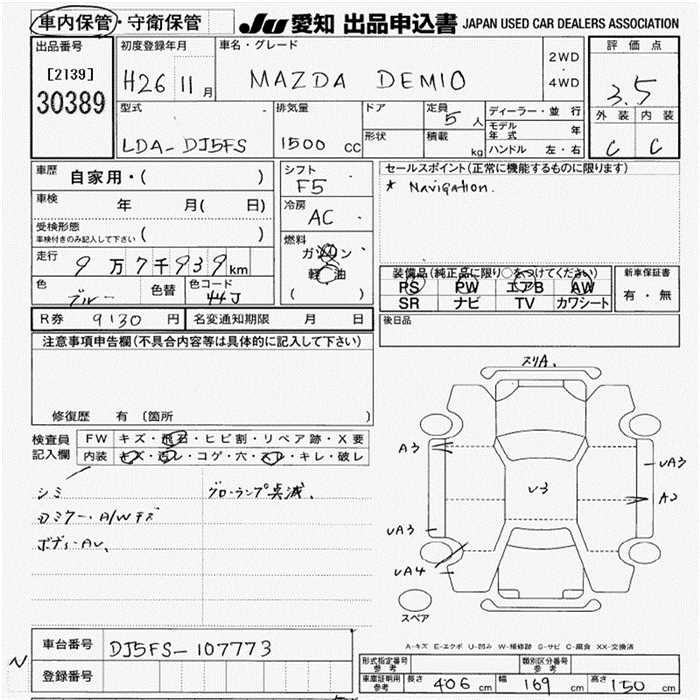 車内保管・守衛保管 JU 愛知 出品申込書 JAPAN USED CAR DEALERS ASSOCIATION
出品番号
[2139]
30389
初度登録年月
H26 11月
車名・グレード
MAZDA DEMIO
2WD
・
4WD
評価点
3.5
外装 内装
C C
型式
LDA-DJ5FS
排気量
1500 CC
ドア
形状
定員
5人
積載
kg
ディーラー・並行
モデル年式 年
ハンドル 左・右
車歴 自家用・( )
車検 年 月( 日)
受検形態
車検付きのみ記入して下さい ( )
走行 9万7千939km
色 ブルー 色替 色コード 44J
シフト
F5
冷房
AC
燃料
ガソリン
軽油
( )
セールスポイント(正常に機能するものに限ります)
* Navigation.
装備品(純正品に限り○をつけてください)
PS PW エアB AW
SR ナビ TV カワシート
新車保証書
有・無
R券 9130 円 名変通知期限 月 日
後日品
注意事項申告欄(不具合内容等は具体的に記入して下さい)
修復歴 有 〔箇所 〕
検査員
記入欄
FW キズ・飛石・ヒビ割・リペア跡・X要
内装 キズ・汚レ・コゲ・穴・スレ・キレ・破レ
シミ グローランプ点滅、
Dミラー・A/Wキズ
ボディーAU、
スリA、
A3
UA3
U3
A2
UA3
UA4
スペア
A-キズ E-エクボ U-凹み W-補修跡 S-サビ C-腐食 XX-交換済
N
車台番号 DJ5FS-107773
登録番号
形式指定番号
参考
類別区分番号
参考
車庫証明用
参考
長さ 406 cm 幅 169 cm 高さ 150 cm